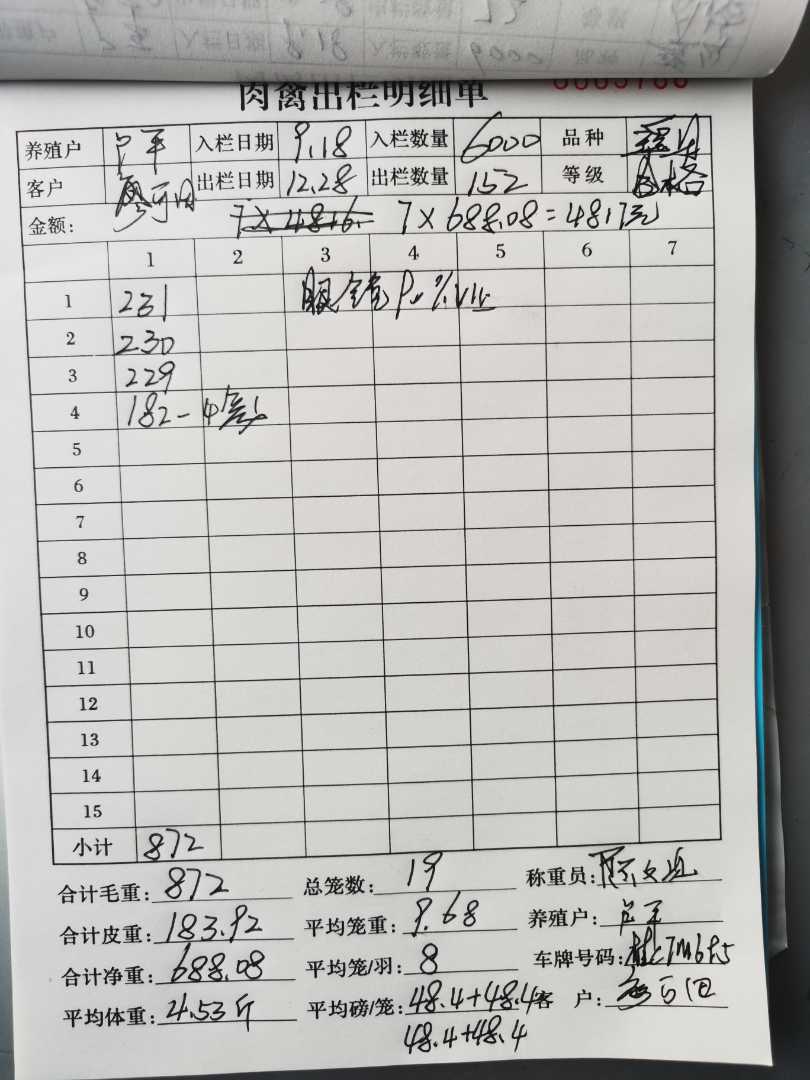 入栏日期 8.18 入栏数量 9000
肉禽出栏明细单
养殖户 卢平 入栏日期 9.18 入栏数量 6000 品种
客户 出栏日期 12.28 出栏数量 152 等级 B格
金额: 7×4816. 7×688.08=4817元
1 2 3 4 5 6 7
1 231
2 230
3 229
4 182-4
5
6
7
8
9
10
11
12
13
14
15
小计 872
合计毛重: 872 总笼数: 19 称重员:
合计皮重: 183.92 平均笼重: 9.68 养殖户: 卢平
合计净重: 688.08 平均笼/羽: 8 车牌号码:
平均体重: 4.53斤 平均磅/笼: 48.4+48.4 客户:
48.4+48.4